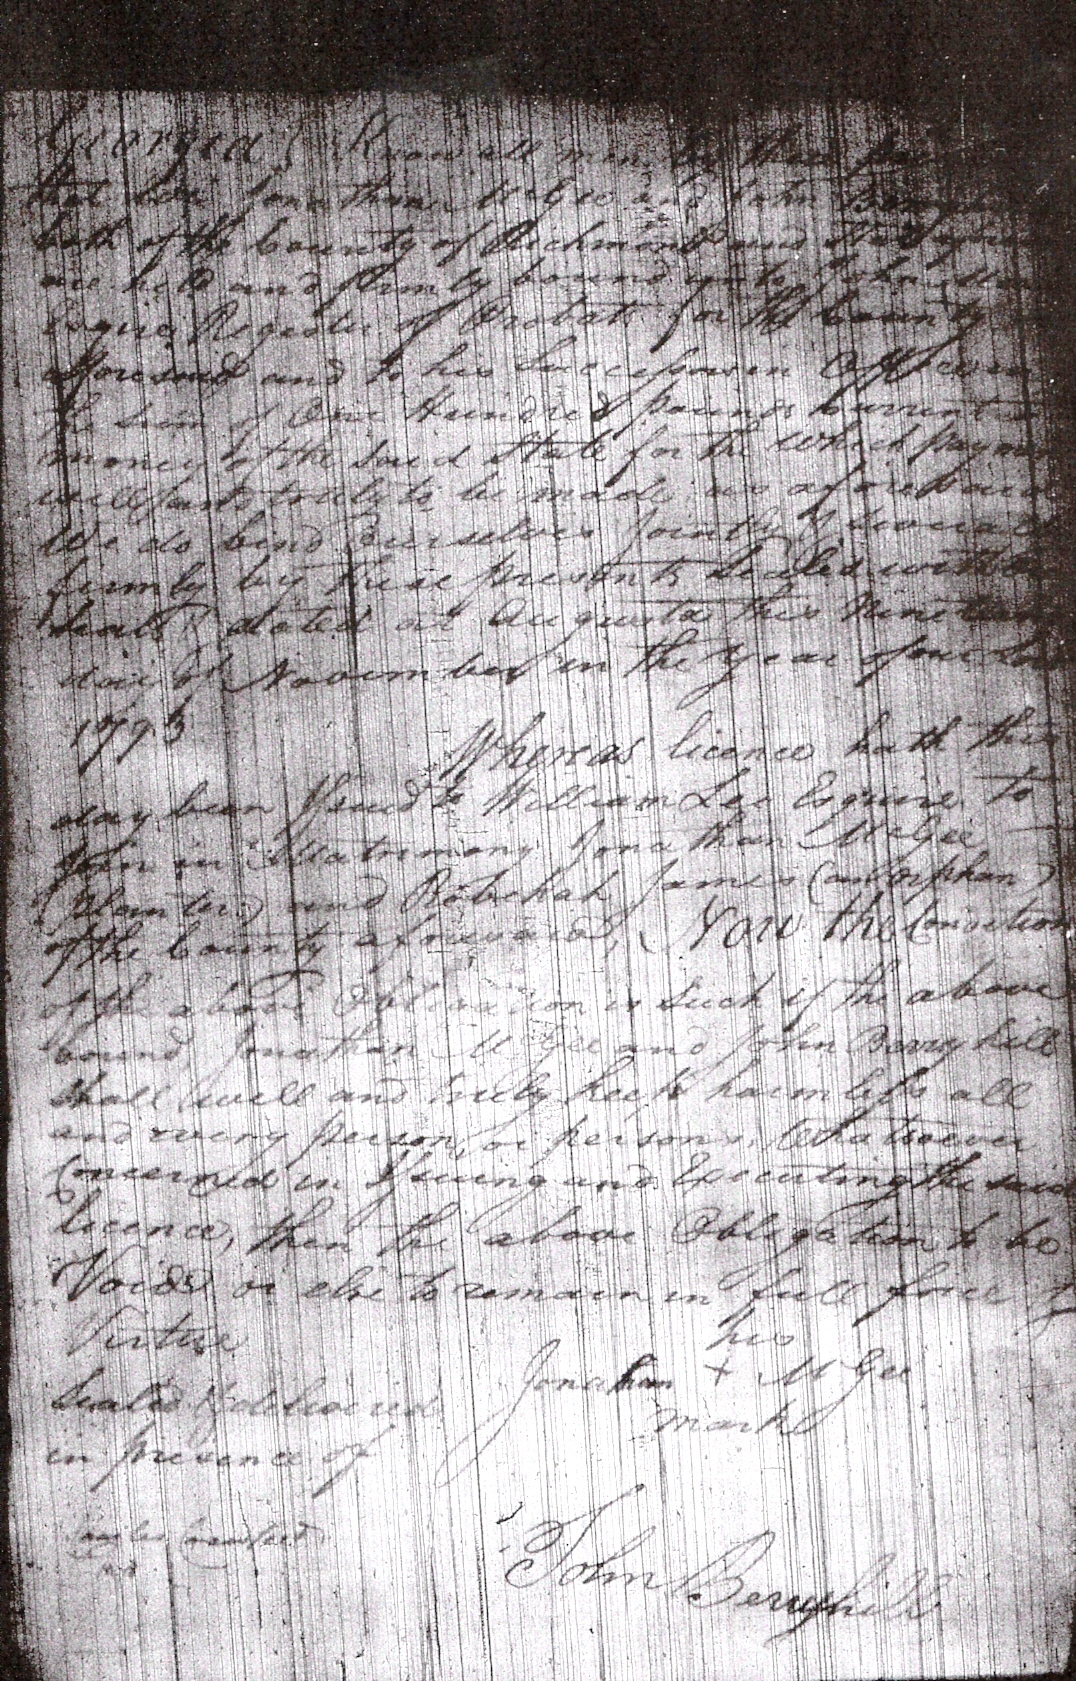 Georgia } Know all men by these
that we Jonathan McGee and John
both of the County of Richmond and State
are held and firmly bound unto John
Esquire Register of Probate for the County
aforesaid and to his Successors in Office in
the sum of One Hundred pounds Current
money of the said State for the which
well and truly to be made as aforesaid
We do bind Ourselves Jointly &
firmly by these presents Sealed with
Seals & dated at Augusta this
day of November in the year of our
1793
Whereas licence hath this
day been Issued to William Esquire to
John in Matrimony Jonathan McGee
(Planter) and Rebekah James (an Orphan)
of the County aforesaid, Now the Condition
of the above Obligation is Such if the above
bound Jonathan McGee and John Berryhill
Shall well and truly keep harmless all
and every person or persons Whatsoever
Concerned in Issuing and Executing the said
licence, then the above Obligation to be
Void or else to remain in full force &
Virtue
his
Jonathan + McGee
mark
Sealed & delivered
in presence of
John Berryhill